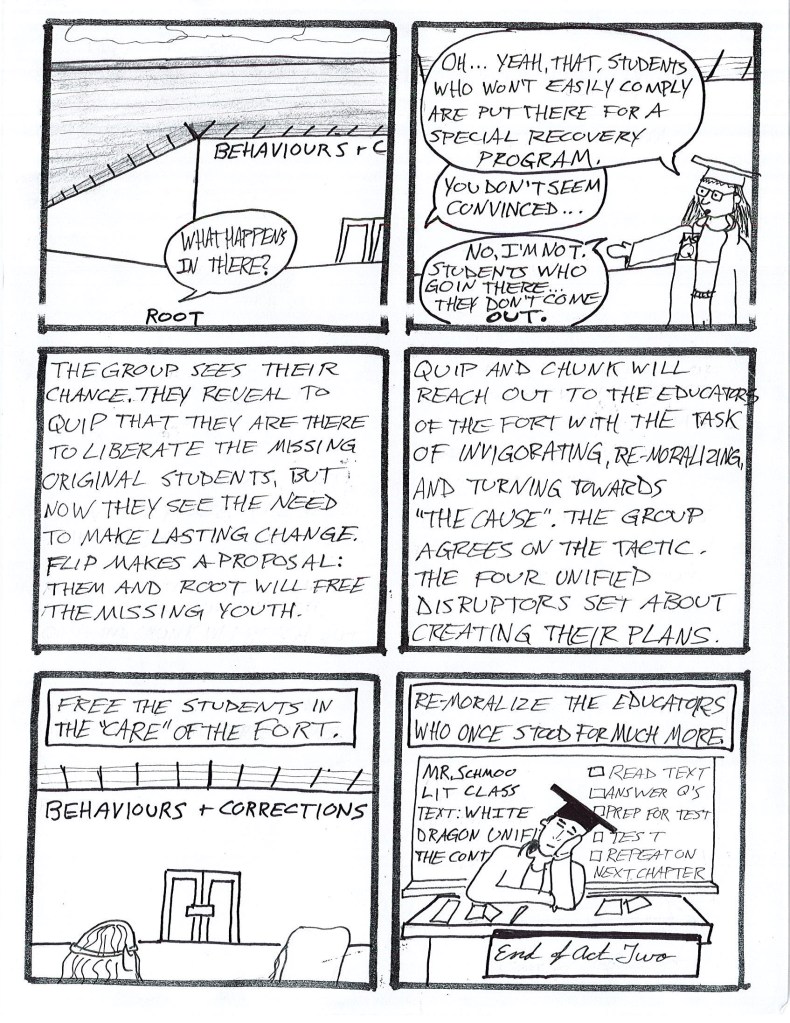 BEHAVIOURS + C
WHAT HAPPENS
IN THERE?
ROOT
OH... YEAH, THAT, STUDENTS
WHO WON'T EASILY COMPLY
ARE PUT THERE FOR A
SPECIAL RECOVERY
PROGRAM.
YOU DON'T SEEM
CONVINCED...
NO, I'M NOT.
STUDENTS WHO
GO IN THERE...
THEY DON'T COME
OUT.
THE GROUP SEES THEIR
CHANCE. THEY REVEAL TO
QUIP THAT THEY ARE THERE
TO LIBERATE THE MISSING
ORIGINAL STUDENTS, BUT
NOW THEY SEE THE NEED
TO MAKE LASTING CHANGE.
FLIP MAKES A PROPOSAL:
THEM AND ROOT WILL FREE
THE MISSING YOUTH.
QUIP AND CHUNK WILL
REACH OUT TO THE EDUCATORS
OF THE FORT WITH THE TASK
OF INVIGORATING, RE-MORALIZING,
AND TURNING TOWARDS
"THE CAUSE". THE GROUP
AGREES ON THE TACTIC.
THE FOUR UNIFIED
DISRUPTORS SET ABOUT
CREATING THEIR PLANS.
FREE THE STUDENTS IN
THE "CARE" OF THE FORT.
BEHAVIOURS + CORRECTIONS
RE-MORALIZE THE EDUCATORS
WHO ONCE STOOD FOR MUCH MORE.
MR. SCHMOO
LIT CLASS
TEXT: WHITE
DRAGON UNIF
THE CONT
READ TEXT
ANSWER Q'S
PREP FOR TEST
TEST
REPEAT ON
NEXT CHAPTER
End of Act Two